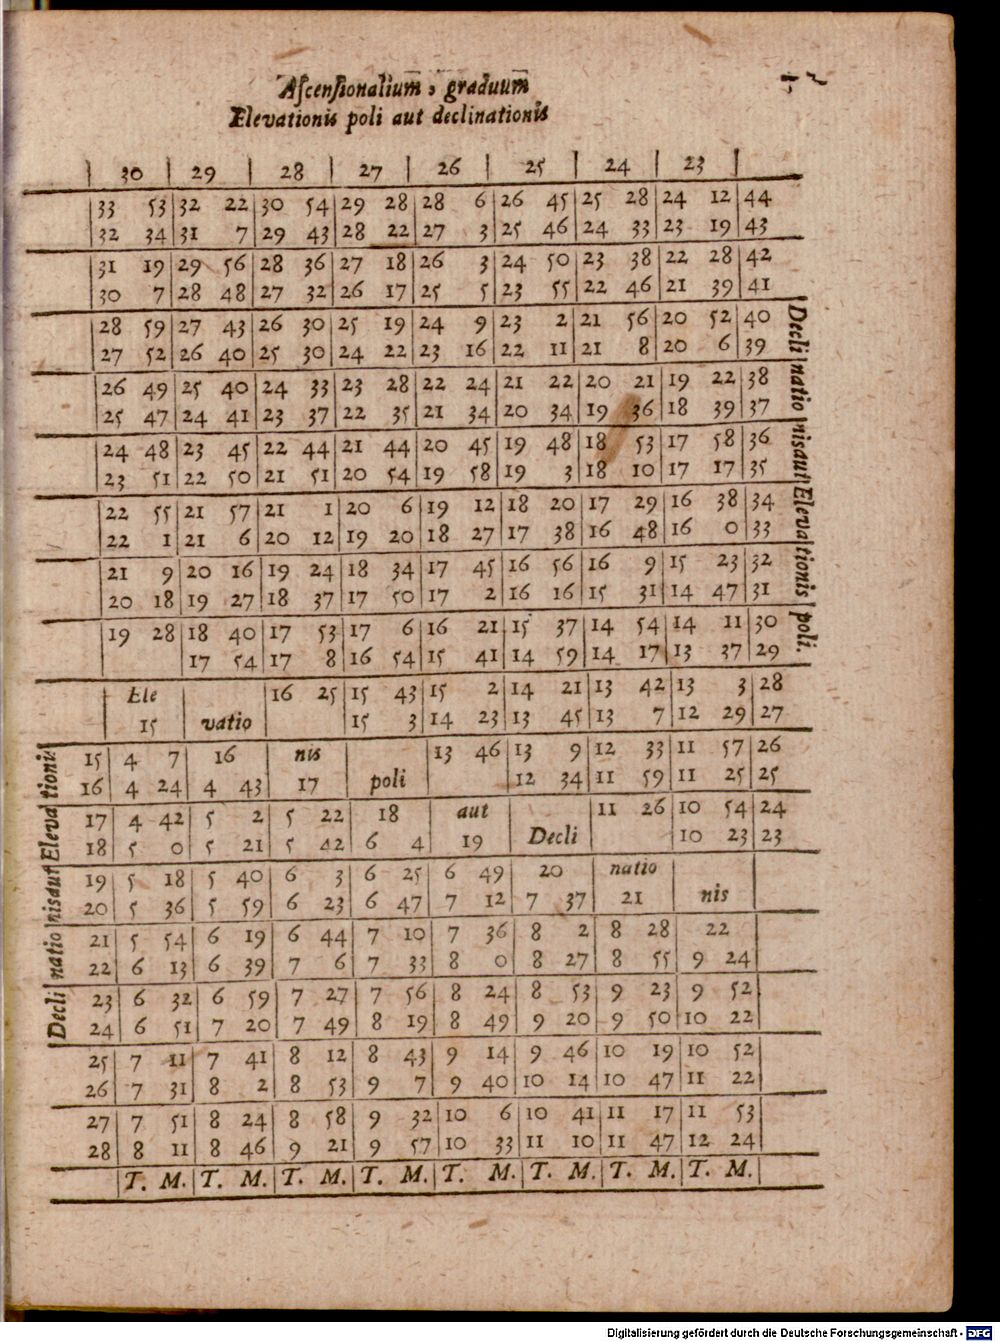 Aſcenſionalium̄ , graduum̄
Elevationis poli aut declinationis
30 29 28 27 26 25 24 23
33 53 32 22 30 54 29 28 28 6 26 45 25 28 24 12 44
32 34 31 7 29 43 28 22 27 3 25 46 24 33 23 19 43
31 19 29 56 28 36 27 18 26 3 24 50 23 38 22 28 42
30 7 28 48 27 32 26 17 25 5 23 55 22 46 21 39 41
28 59 27 43 26 30 25 19 24 9 23 2 21 56 20 52 40
27 52 26 40 25 30 24 22 23 16 22 11 21 8 20 6 39
26 49 25 40 24 33 23 28 22 24 21 22 20 21 19 22 38
25 47 24 41 23 37 22 35 21 34 20 34 19 36 18 39 37
24 48 23 45 22 44 21 44 20 45 19 48 18 53 17 58 36
23 51 22 50 21 51 20 54 19 58 19 3 18 10 17 17 35
22 55 21 57 21 1 20 6 19 12 18 20 17 29 16 38 34
22 1 21 6 20 12 19 20 18 27 17 38 16 48 16 0 33
21 9 20 16 19 24 18 34 17 45 16 56 16 9 15 23 32
20 18 19 27 18 37 17 50 17 2 16 16 15 31 14 47 31
19 28 18 40 17 53 17 6 16 21 15 37 14 54 14 11 30
17 54 17 8 16 54 15 41 14 59 14 17 13 37 29
Declinatio nisaut Elevationis poli.
Ele 16 25 15 43 15 2 14 21 13 42 13 3 28
15 vatio 15 3 14 23 13 45 13 7 12 29 27
15 4 7 16 nis 13 46 13 9 12 33 11 57 26
16 4 24 4 43 17 poli 12 34 11 59 11 25 25
17 4 42 5 2 5 22 18 aut 11 26 10 54 24
18 5 0 5 21 5 42 6 4 19 Decli 10 23 23
19 5 18 5 40 6 3 6 25 6 49 20 natio
20 5 36 5 59 6 23 6 47 7 12 7 37 21 nis
21 5 54 6 19 6 44 7 10 7 36 8 2 8 28 22
22 6 13 6 39 7 6 7 33 8 0 8 27 8 55 9 24
23 6 32 6 59 7 27 7 56 8 24 8 53 9 23 9 52
24 6 51 7 20 7 49 8 19 8 49 9 20 9 50 10 22
25 7 11 7 41 8 12 8 43 9 14 9 46 10 19 10 52
26 7 31 8 2 8 53 9 7 9 40 10 14 10 47 11 22
27 7 51 8 24 8 58 9 32 10 6 10 41 11 17 11 53
28 8 11 8 46 9 21 9 57 10 33 11 10 11 47 12 24
T. M. T. M. T. M. T. M. T. M. T. M. T. M. T. M.
Declinatio nisaut Elevationis
Digitalisierung gefördert durch die Deutsche Forschungsgemeinschaft - DFG